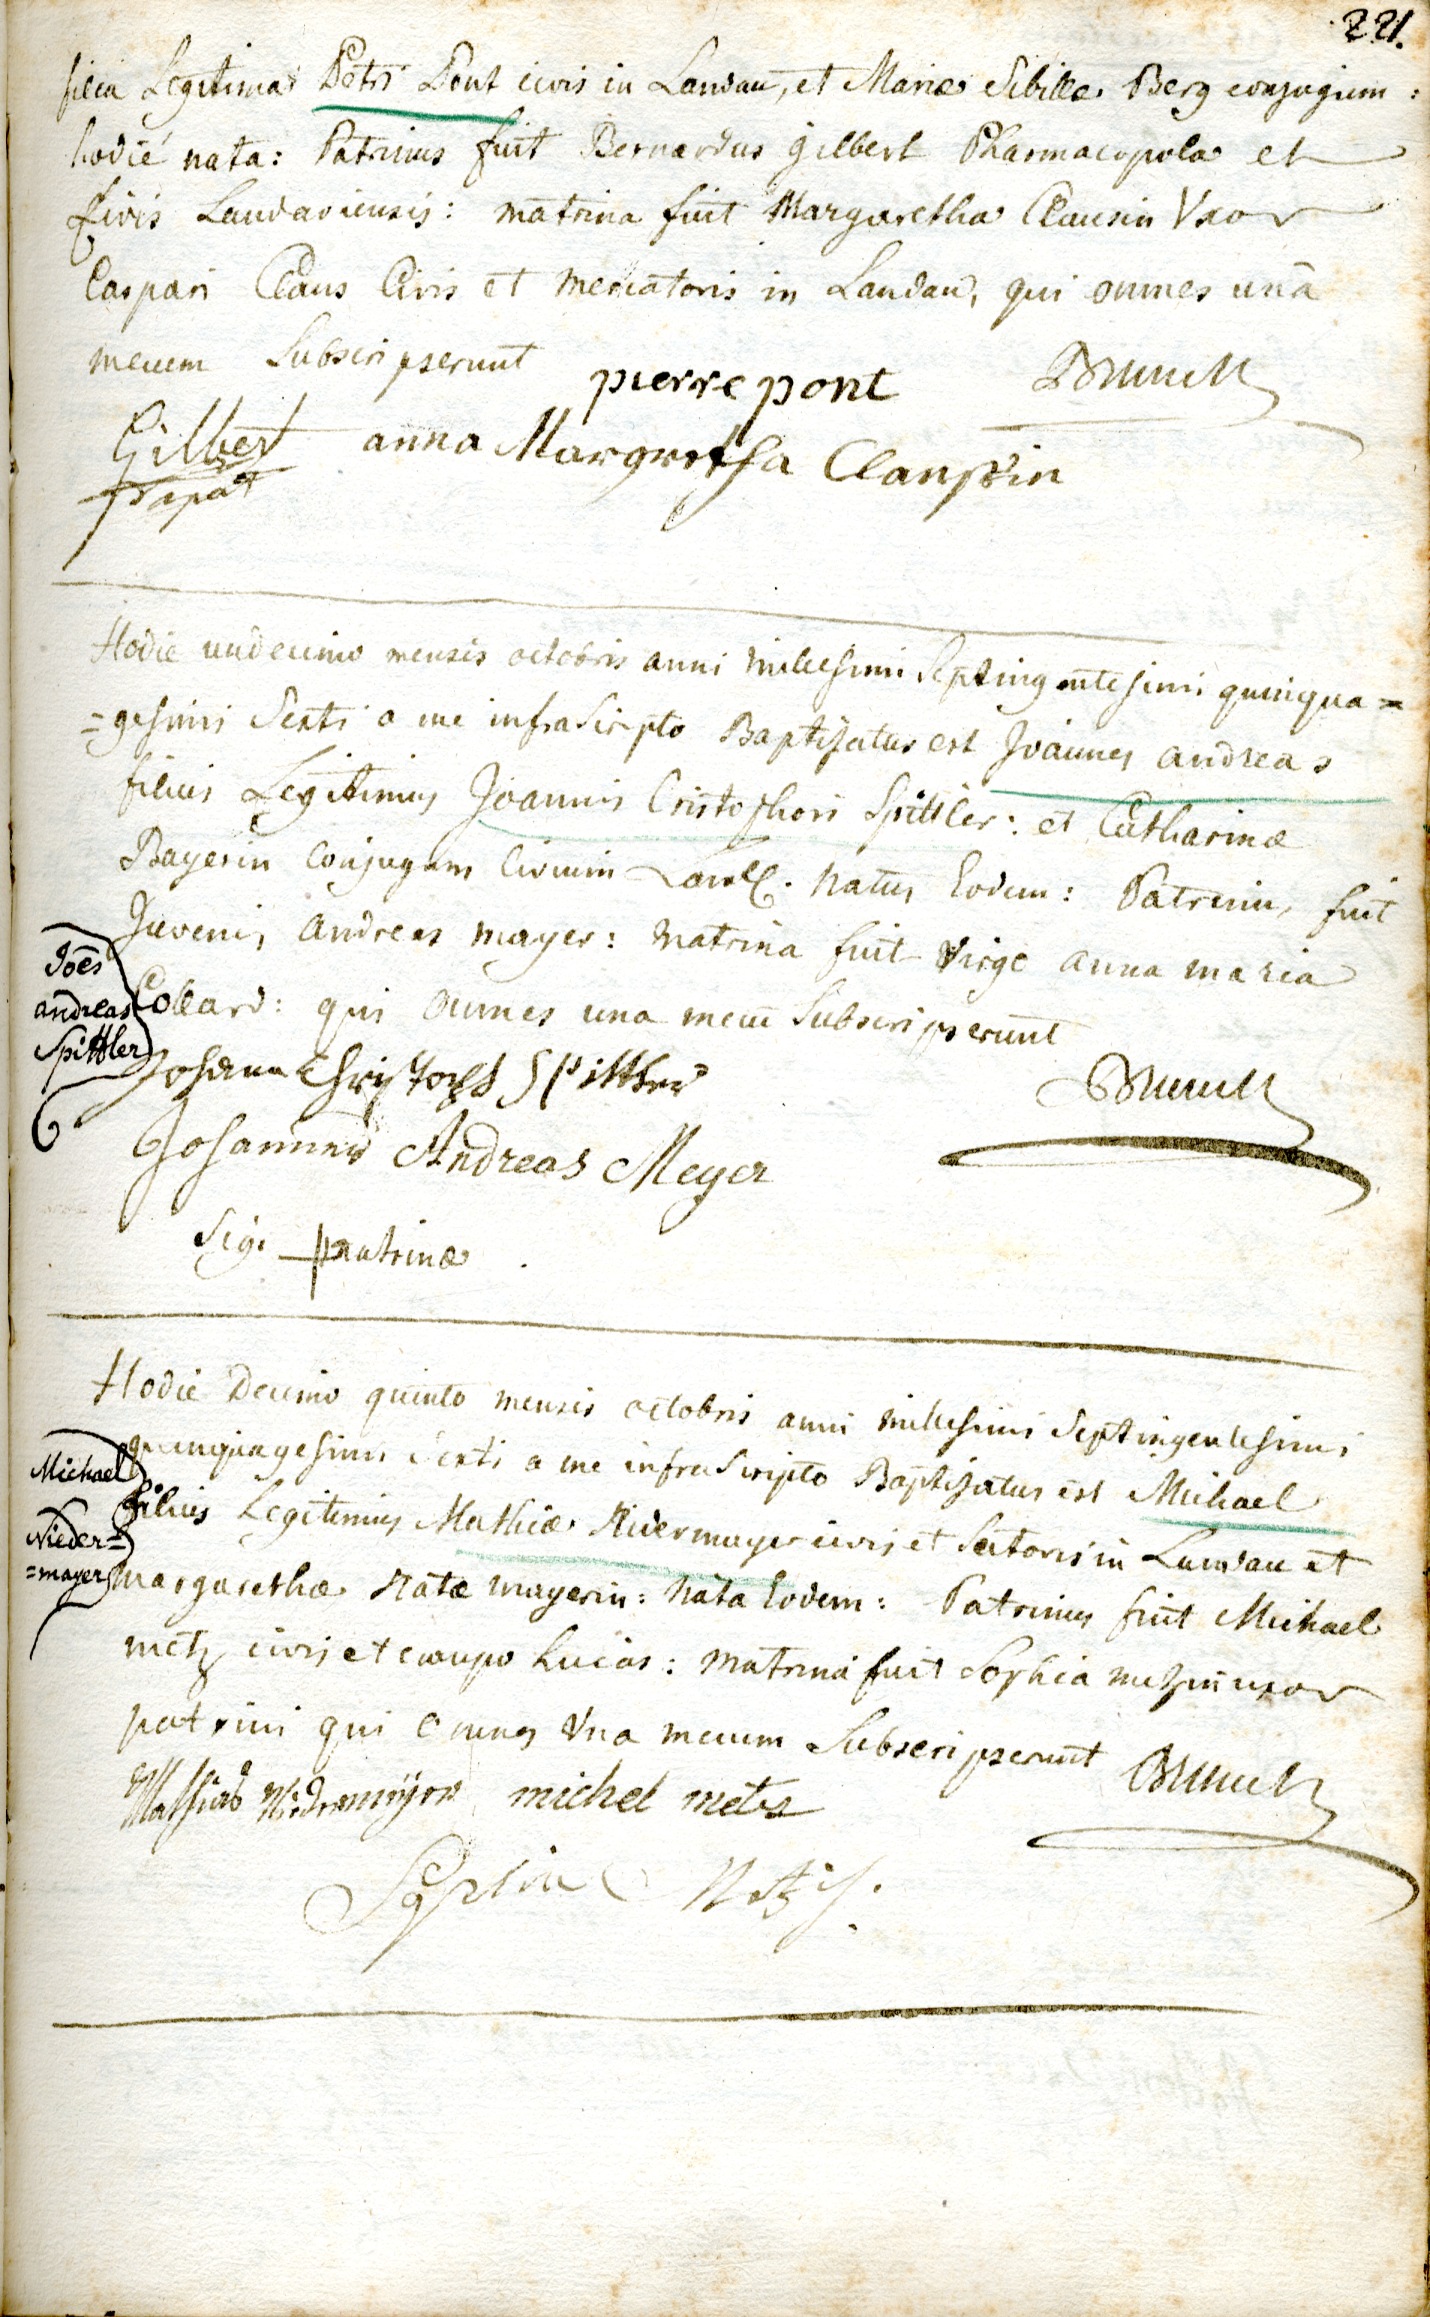 221.
filia Legitima Petri Pont civis in Landau, et Mariæ Sibillæ Berg conjugum:
hodie nata: Patrinus fuit Bernardus gilbert Pharmacopola et
Civis Landaviensis: matrina fuit Margaretha Clausin Vxor
Caspari Claus Civis et mercatoris in Landau, qui omnes unà
mecum Subscripserunt
pierre pont
Gilbert anna Margretha
Hodie undecimo mensis octobris anni millesimi Septingentesimi quinqua=
=gesimi Sexti a me infrascripto Baptisatus est Joannes andreas
filius Legitimus Joannis Cristophori Spittler: et Catharinæ
Bayerin Conjugum Civium natus Eodem: Patrinus fuit
Juvenis andreas mayer: matrina fuit virgo anna maria
Collard: qui omnes una mecũ Subscripserunt
Joẽs
andreas
Spittler
Johann Christoph Spittler
Johannes Andreas Meyer
Sig. matrinæ
Hodie Decimo quinto mensis octobris anni millesimi Septingentesimi
quinquagesimi Sexti a me infrascripto Baptisatus est Michael
filius Legitimus Mathiæ Nidermayer civis et Sutoris in Landau et
margarethæ Natæ mayerin: nata Eodem: Patrinus fuit Michael
metz civis et caupo hucas: matrina fuit Sophia metzin uxor
patrini qui omnes Vna mecum Subscripserunt
Michael
Nieder=
=mayer
Mathias michel metz